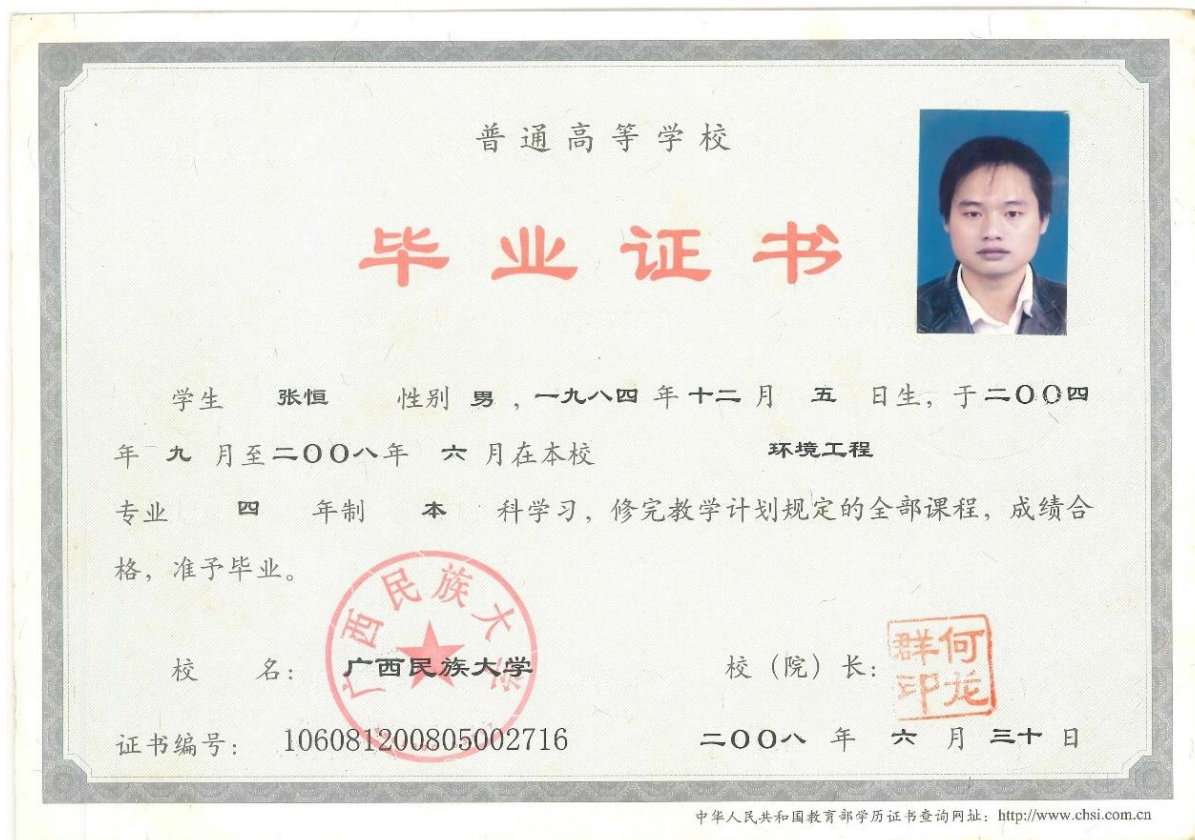 普通高等学校
毕业证书
学生 张恒 性别 男，一九八四年十二月 五 日生，于二〇〇四
年 九 月至二〇〇八年 六 月在本校 环境工程
专业 四 年制 本 科学习，修完教学计划规定的全部课程，成绩合
格，准予毕业。
广西民族大学
校 名：广西民族大学
校（院）长：
何龙群印
证书编号：106081200805002716
二〇〇八 年 六 月 三十 日
中华人民共和国教育部学历证书查询网址：http://www.chsi.com.cn